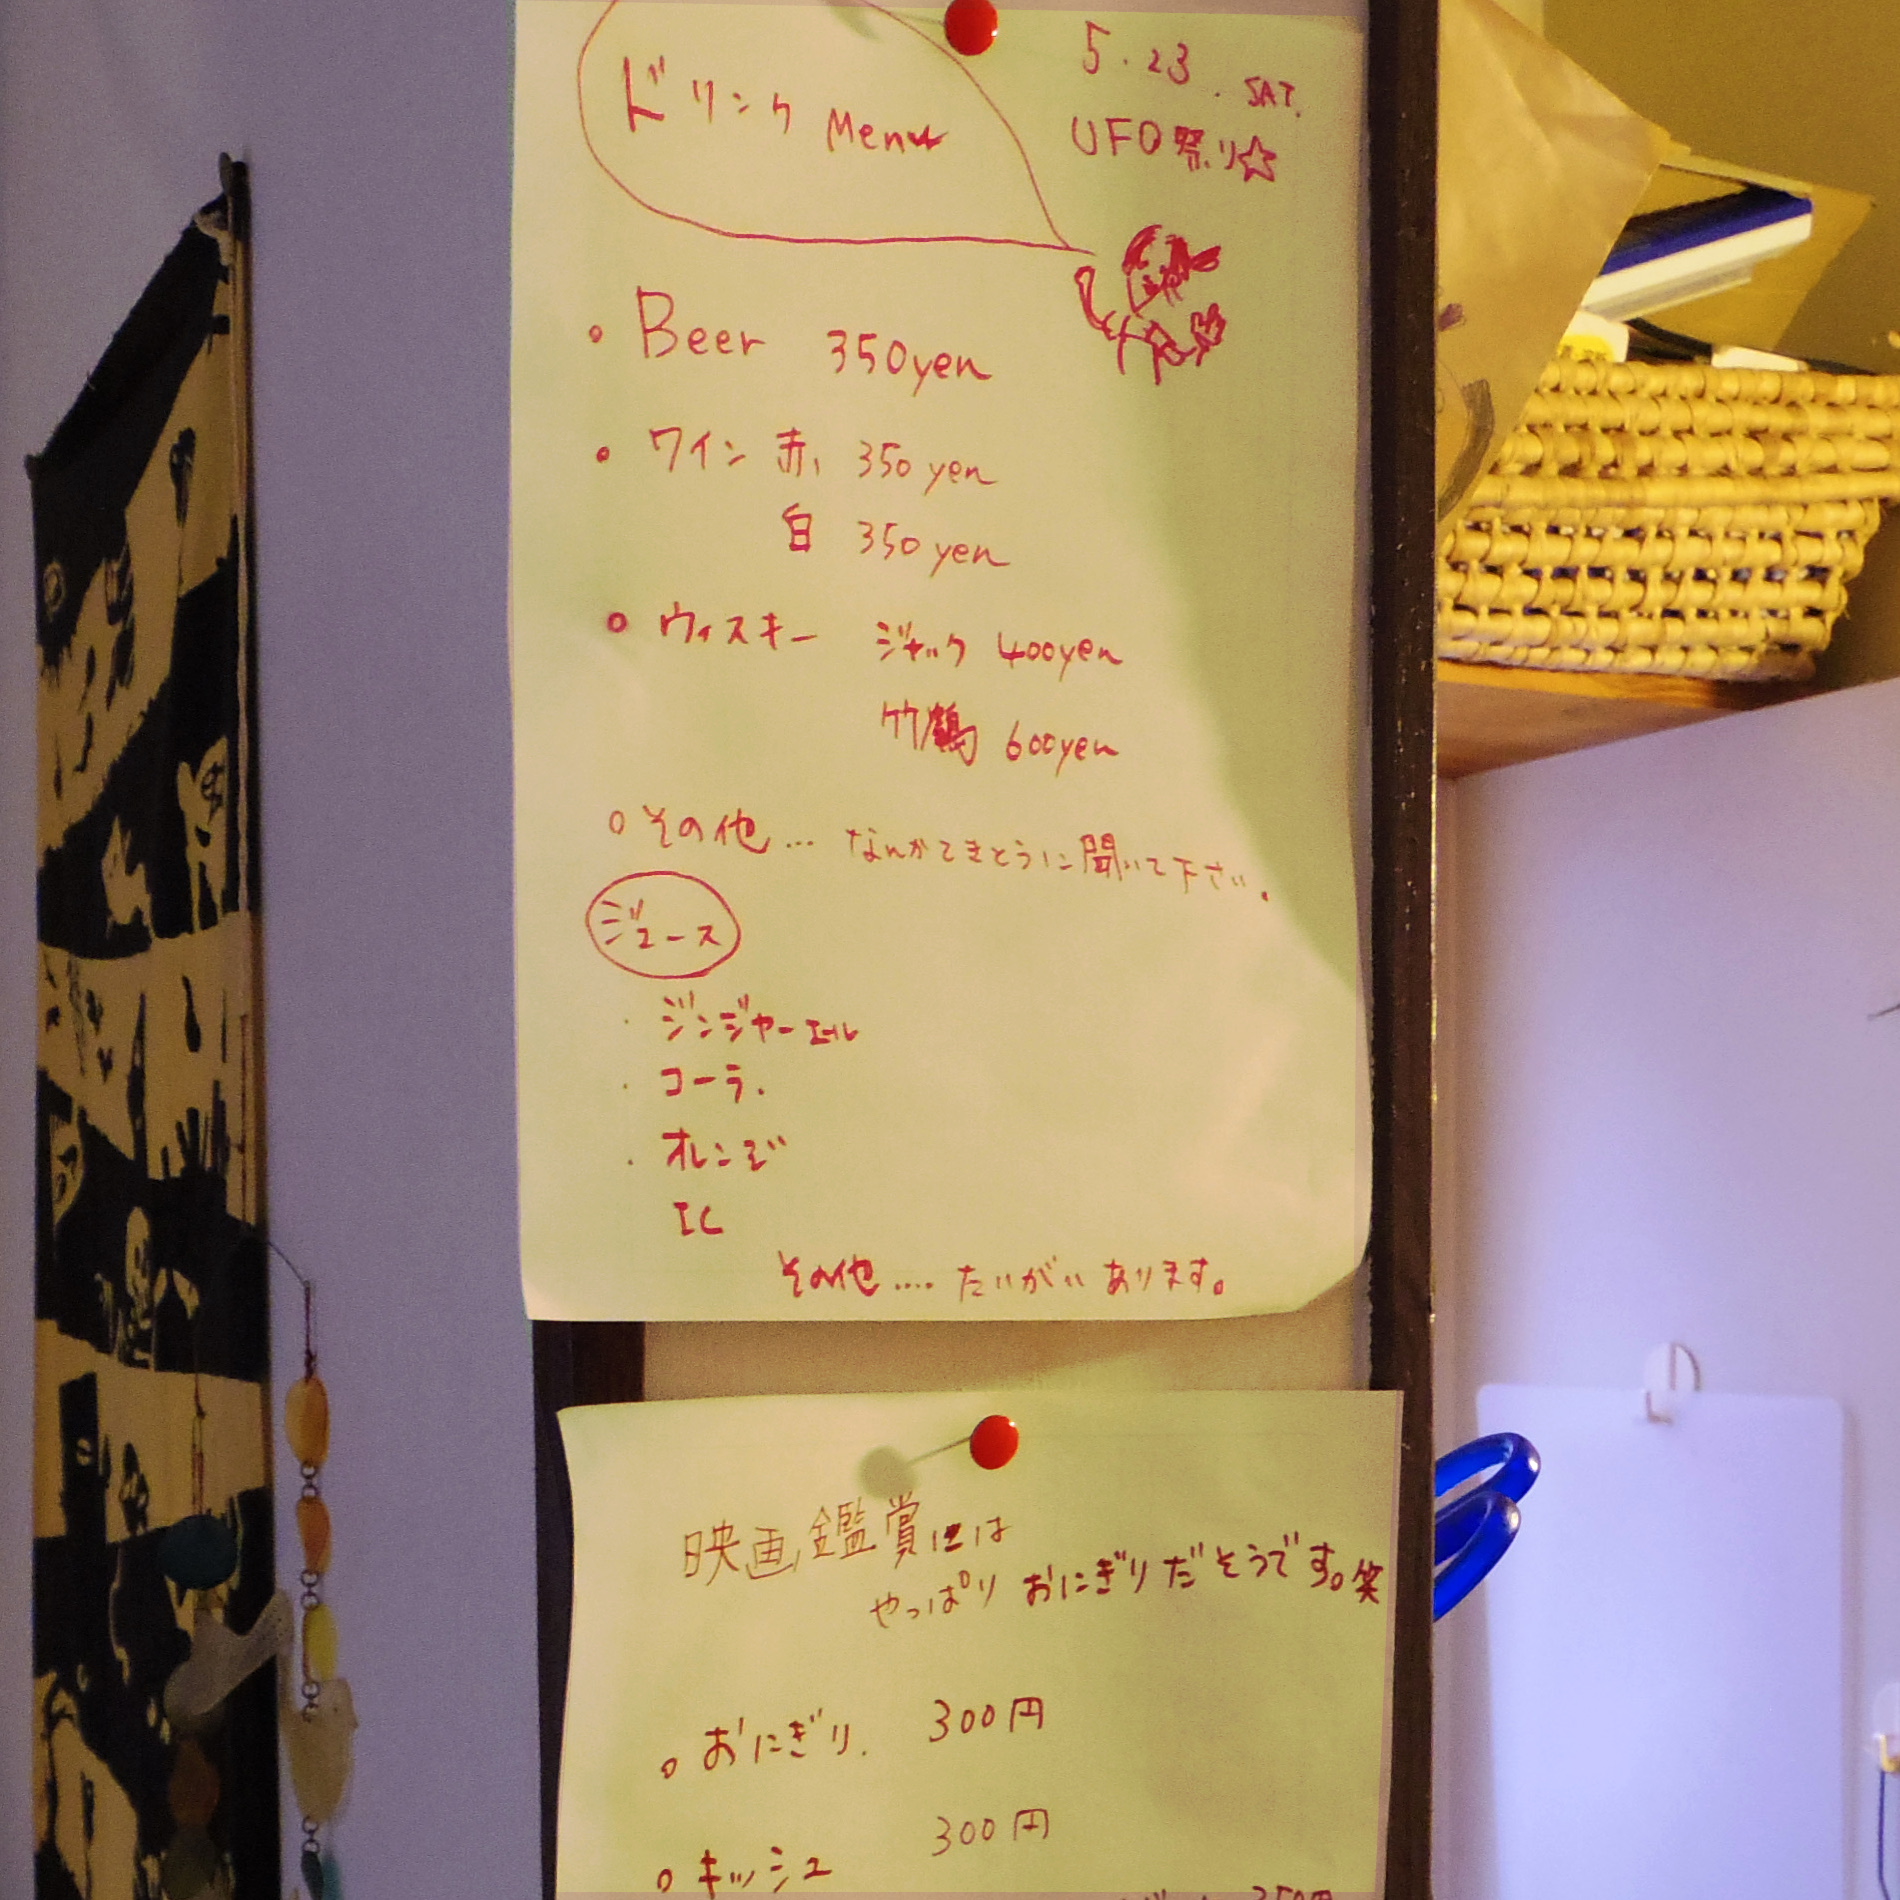 ドリンク Menu
5.23. SAT.
UFO祭り☆
・Beer 350yen
・ワイン 赤 350yen
白 350yen
・ウィスキー ジャック 400yen
竹鶴 600yen
○その他… なんかてきとうに聞いて下さい.
ジュース
・ジンジャーエール
・コーラ.
・オレンジ
その他.... たいがい あります。
映画鑑賞には
やっぱり おにぎりだそうです。笑
○おにぎり. 300円
○キッシュ 300円
350円